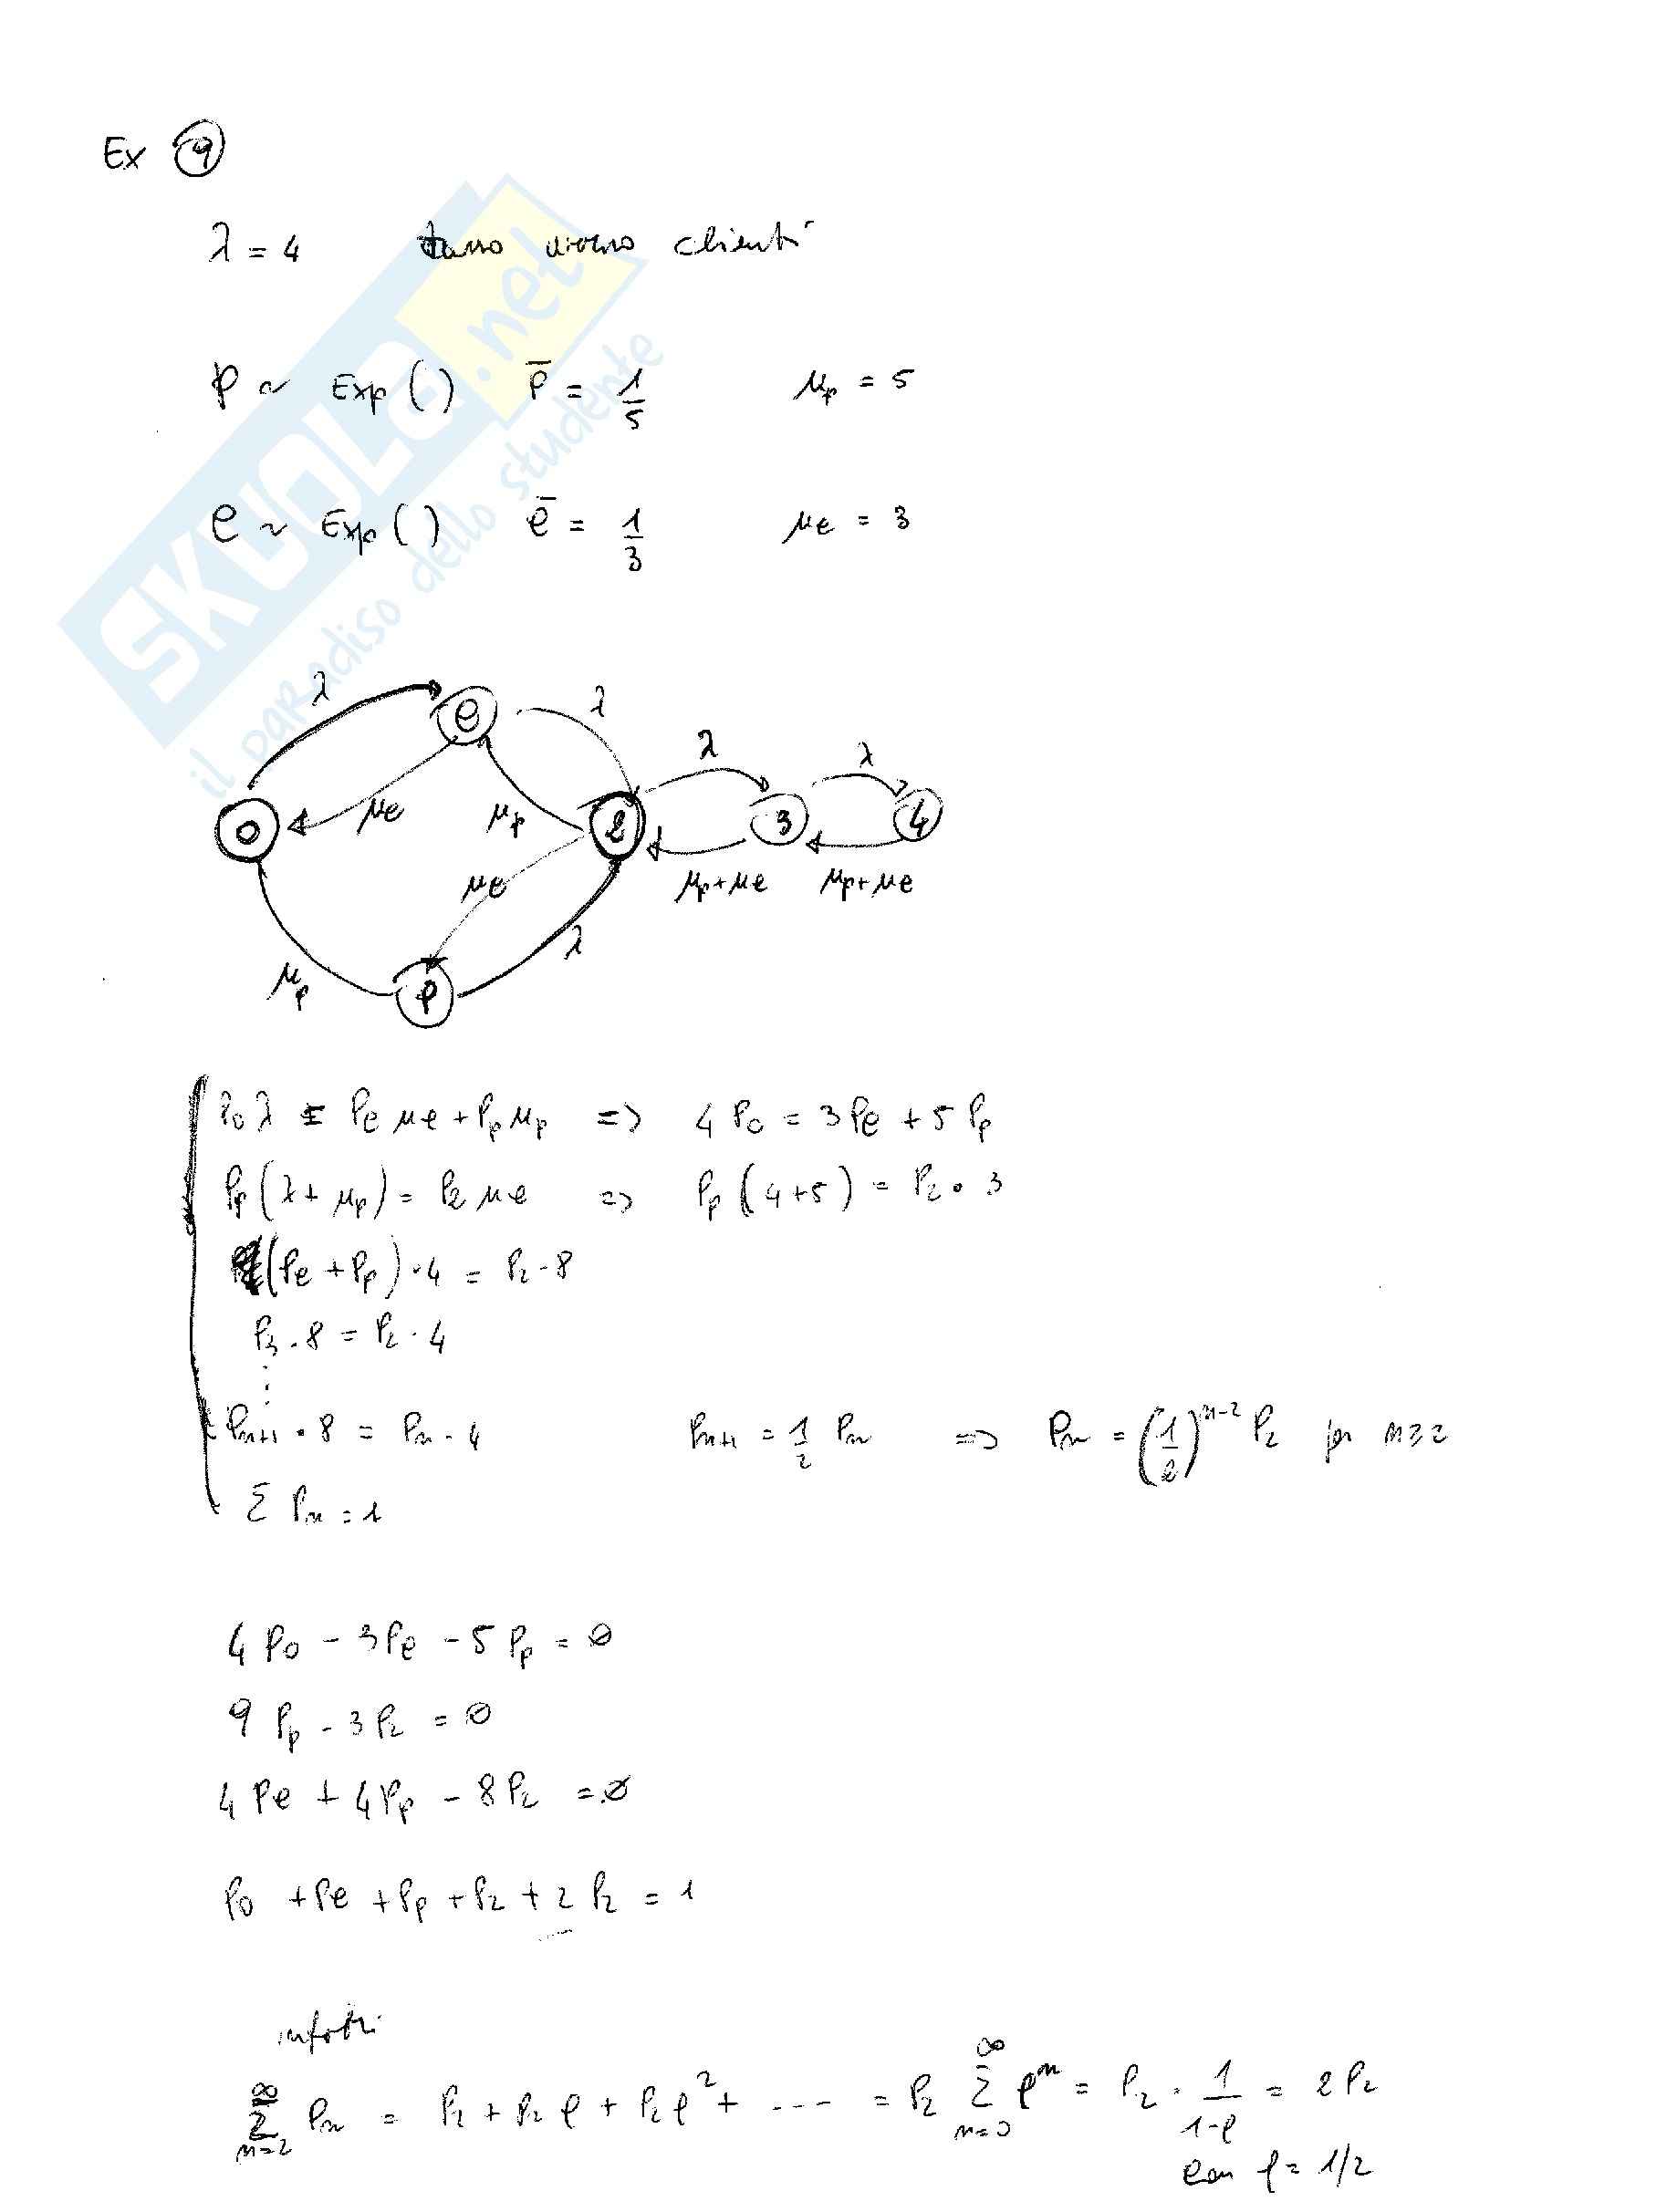 Ex 9
λ = 4 tasso arrivo clienti
p ~ Exp ( ) p̄ = 1/5 μp = 5
e ~ Exp ( ) ē = 1/3 μe = 3
SKUOLA.net
il paradiso dello studente
λ e λ
λ λ
0 μe μp 2 3 4
μe μp+μe μp+μe
λ
μp p
P0 λ = Pe μe + Pp μp => 4 P0 = 3 Pe + 5 Pp
Pp (λ + μp) = P2 μe => Pp (4+5) = P2 · 3
(Pe + Pp) · 4 = P2 · 8
P3 · 8 = P2 · 4
⋮
Pn+1 · 8 = Pn · 4 Pn+1 = 1/2 Pn => Pn = (1/2)^(n-2) P2 per n≥2
Σ Pn = 1
4 P0 - 3 Pe - 5 Pp = 0
9 Pp - 3 P2 = 0
4 Pe + 4 Pp - 8 P2 = 0
P0 + Pe + Pp + P2 + 2 P2 = 1
infatti
∞ Σ n=2 Pn = P2 + P2 ρ + P2 ρ² + ---- = P2 ∞ Σ n=0 ρ^n = P2 · 1/(1-ρ) = 2 P2
con ρ = 1/2